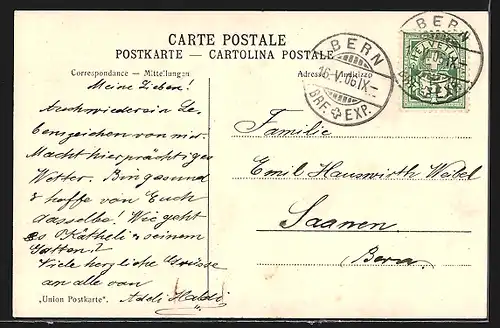 CARTE POSTALE
POSTKARTE — CARTOLINA POSTALE
Correspondance — Mitteilungen
Adresse — Indirizzo
BERN
16.V.06.IX—
BRF. EXP.
BERN
HELVETIA
Meine Lieben!
Auch wieder ein Le-
benszeichen von mir.
Macht hier prächtiges
Wetter. Bin gesund
& hoffe von Euch
dasselbe! Wie geht
es Kätheli & seinem
Gatten?
Viele herzliche Grüsse
an alle von
Adeli Haldi
Familie
Emil Hauswirth
Saanen.
Bern.
„Union Postkarte".